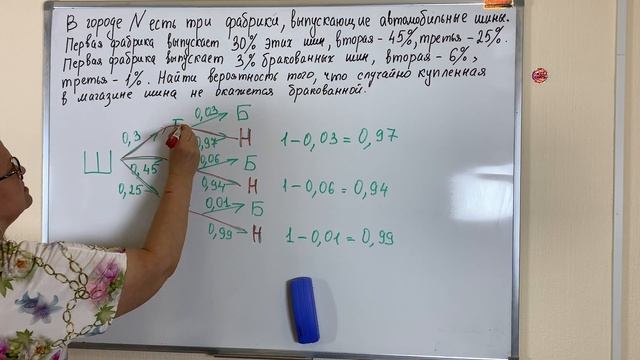 В городе N есть три фабрики, выпускающие автомобильные шины.
Первая фабрика выпускает 30% этих шин, вторая - 45%, третья - 25%.
Первая фабрика выпускает 3% бракованных шин, вторая - 6%,
третья - 1%. Найти вероятность того, что случайно купленная
в магазине шина не окажется бракованной.
0,03 Б
0,3 0,97 Н 1 - 0,03 = 0,97
Ш 0,45 0,06 Б
0,25 0,94 Н 1 - 0,06 = 0,94
0,01 Б
0,99 Н 1 - 0,01 = 0,99